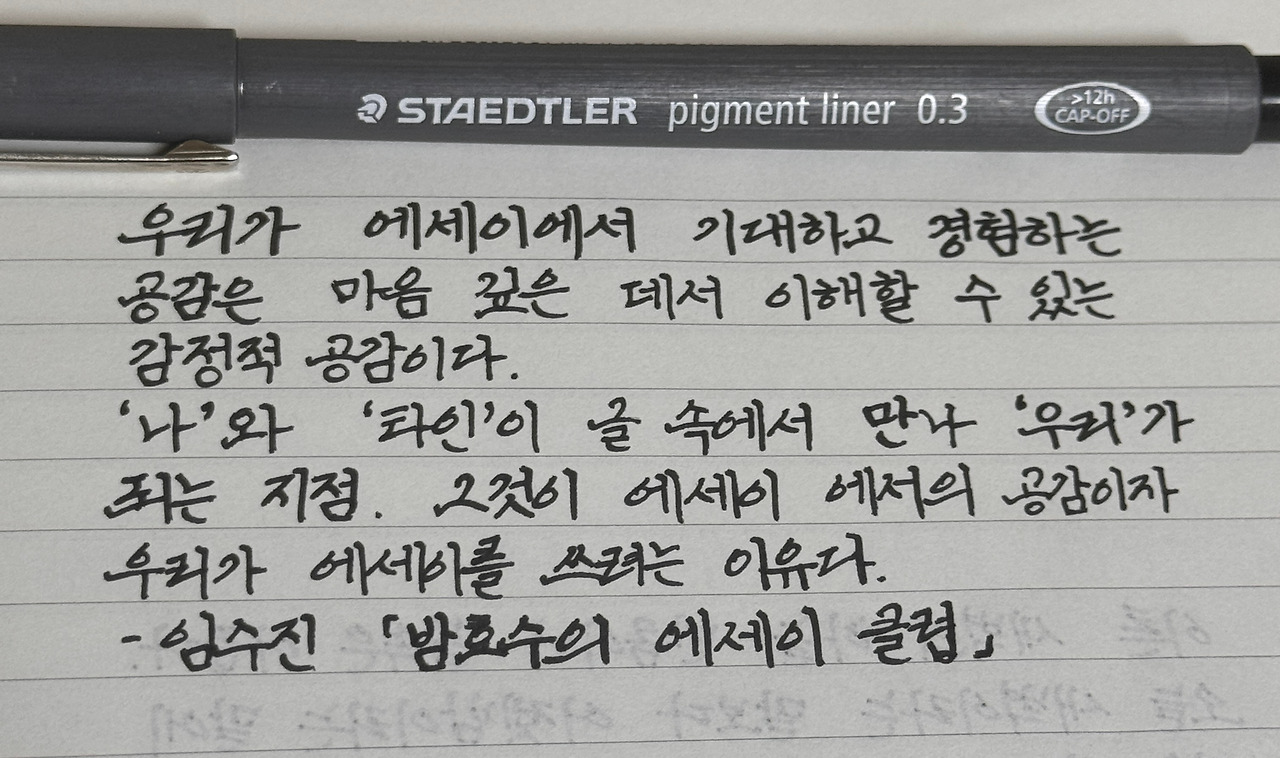 STAEDTLER pigment liner 0.3
>12h
CAP-OFF
우리가 에세이에서 기대하고 경험하는
공감은 마음 깊은 데서 이해할 수 있는
감정적 공감이다.
‘나’와 ‘타인’이 글 속에서 만나 ‘우리’가
되는 지점. 그것이 에세이 에서의 공감이자
우리가 에세이를 쓰려는 이유다.
- 임수진 「밤호수의 에세이 클럽」